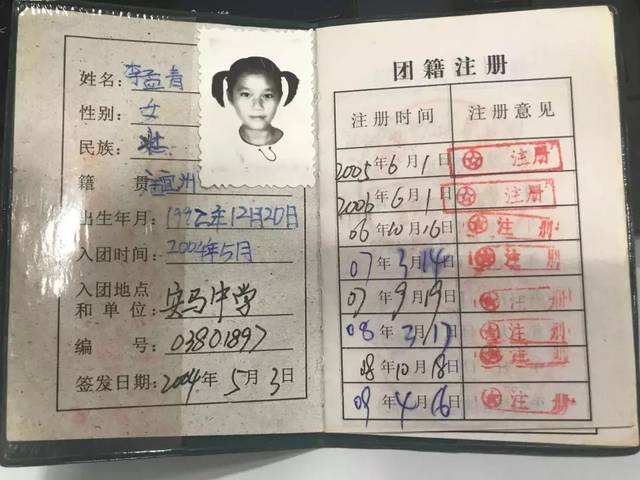 姓名：李孟青
性别：女
民族：壮
籍 贯：宜州
出生年月：1992年12月20日
入团时间：2004年5月
入团地点
和单位：安马中学
编 号：03801897
签发日期：2004年5月3日
团籍注册
注册时间 注册意见
2005年6月1日 注册
2006年6月1日 注册
06年10月16日 注册
07年3月14日 注册
07年9月19日 注册
08年3月17日 注册
08年10月18日 注册
09年4月16日 注册